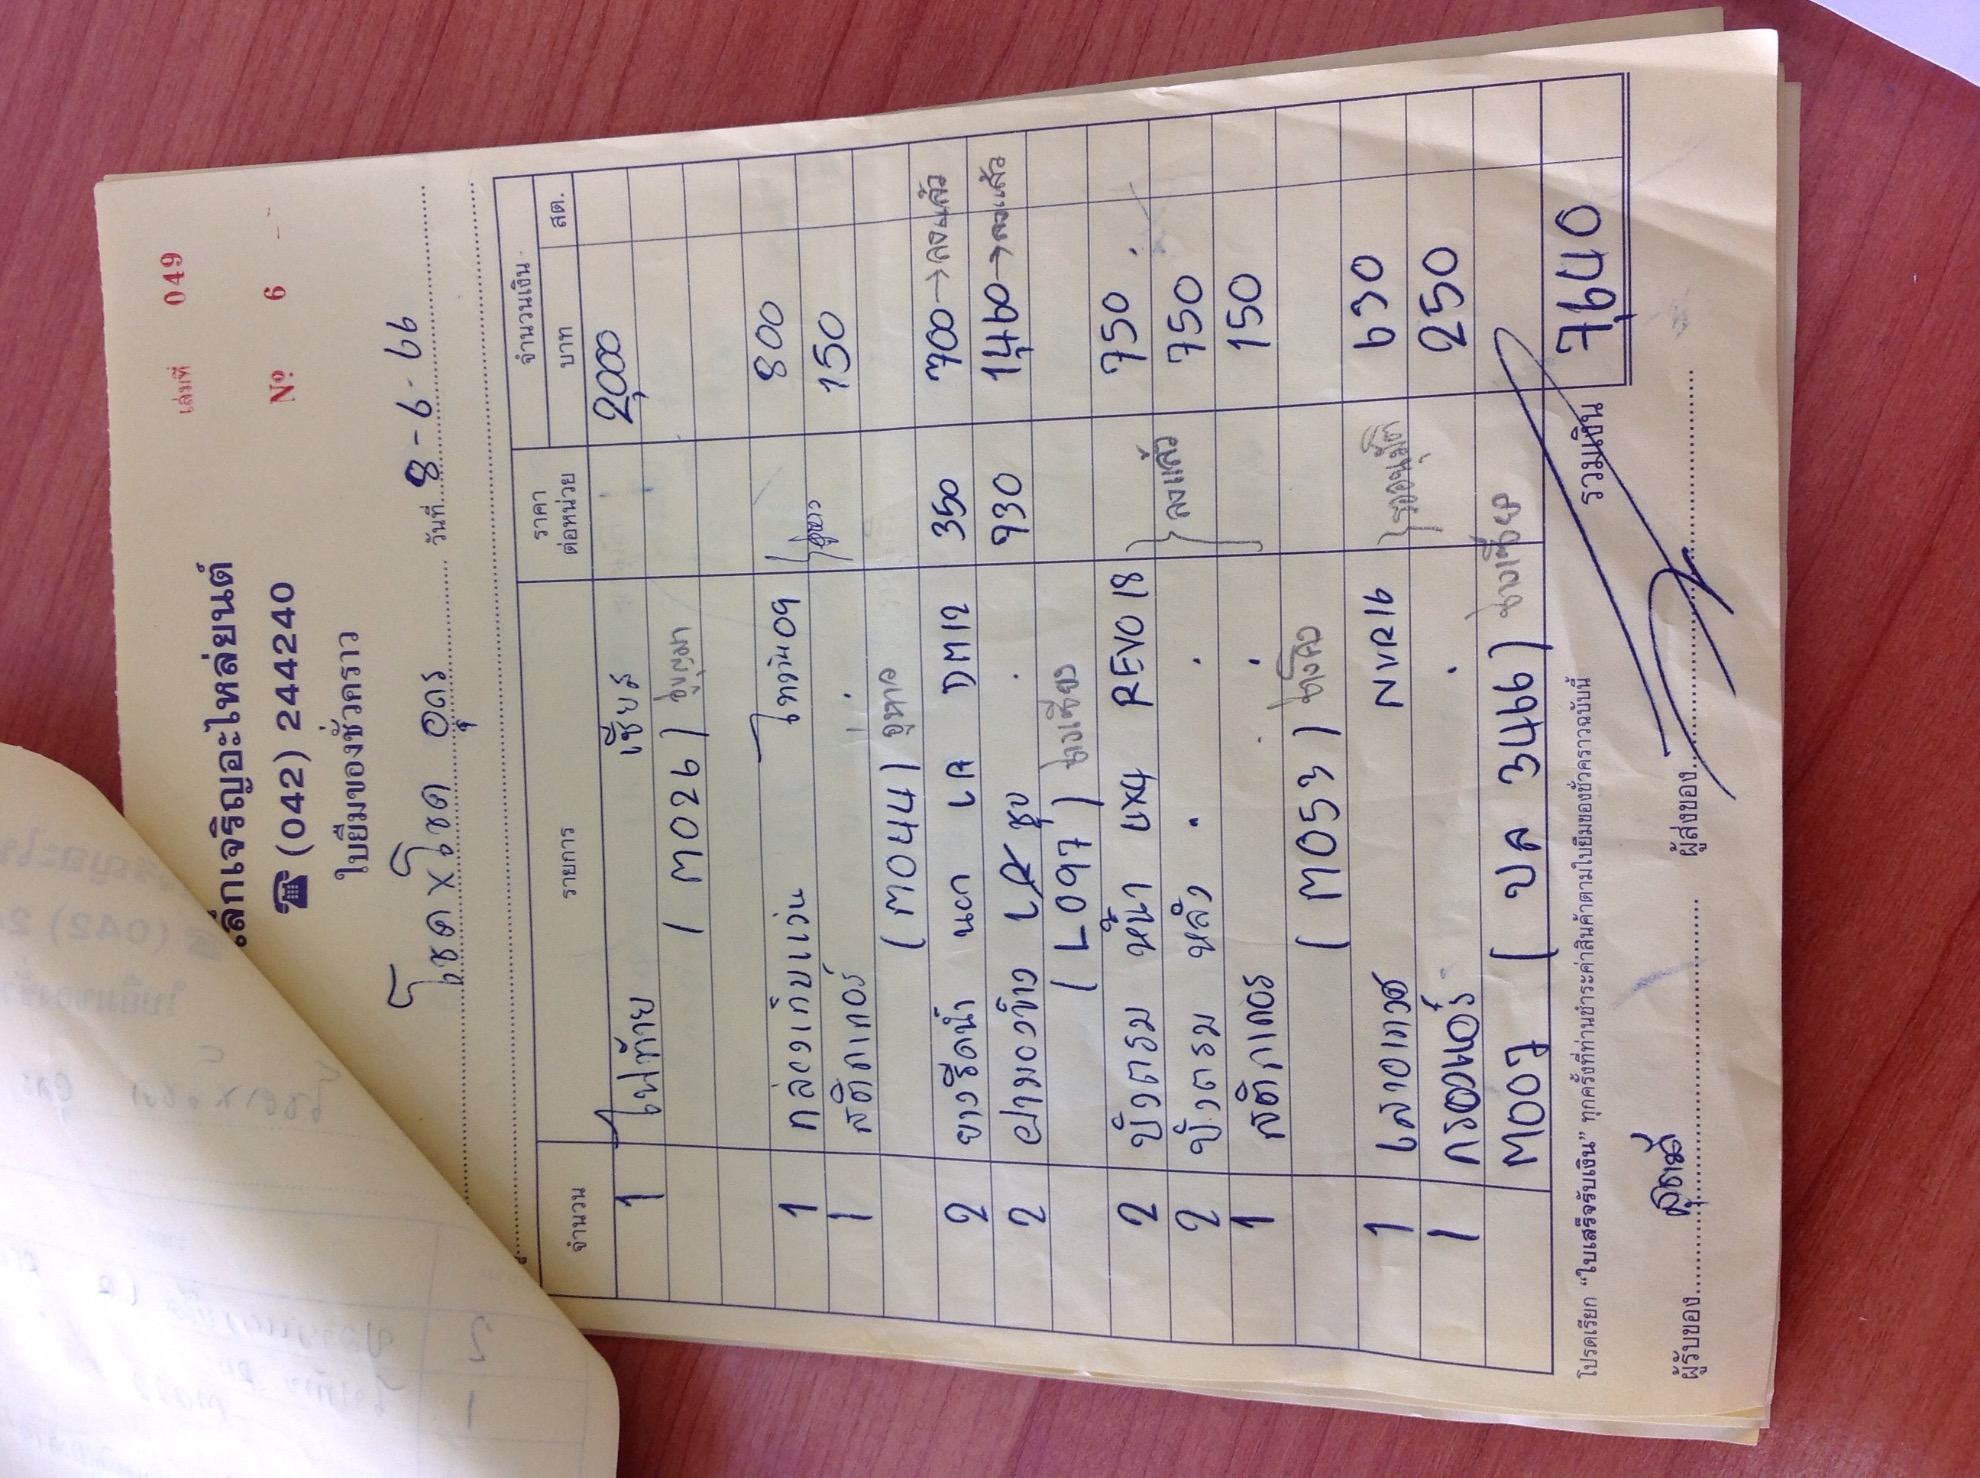 เล่มที่ 049
เล็กเจริญอะไหล่ยนต์
☎ (042) 244240
Nº 6
ใบยืมของชั่วคราว
โชค x โชค อุดร วันที่ 8-6-66
จำนวน รายการ ราคาต่อหน่วย จำนวนเงิน
บาท สต.
1 ไฟท้าย เชียร์ 2,000
(M026)
1 กล่องเก็บแว่น ไททัน09 800
1 สติกเกอร์ 150
(M044)
2 ยางรีดน้ำ นอก LR DM12 350 700 → ลงแล้ว
2 ฝามองข้าง LR ชุบ 930 1,460 → ลงแล้ว
(L097) นางเขียว
2 บังตรม หน้า 4x4 REVO 18 750
2 บังตรม หลัง 750 ลงแล้ว
1 สติกเกอร์ 150
(M053)
1 สายเกวส NVR16 630
1 กรองแอร์ 250
M007 (บล 3466) นางเขียว
รวมเงิน 7,640
โปรดเรียก "ใบเสร็จรับเงิน" ทุกครั้งที่ท่านชำระค่าสินค้าตามใบยืมของชั่วคราวฉบับนี้
ผู้รับของ ผู้ส่งของ